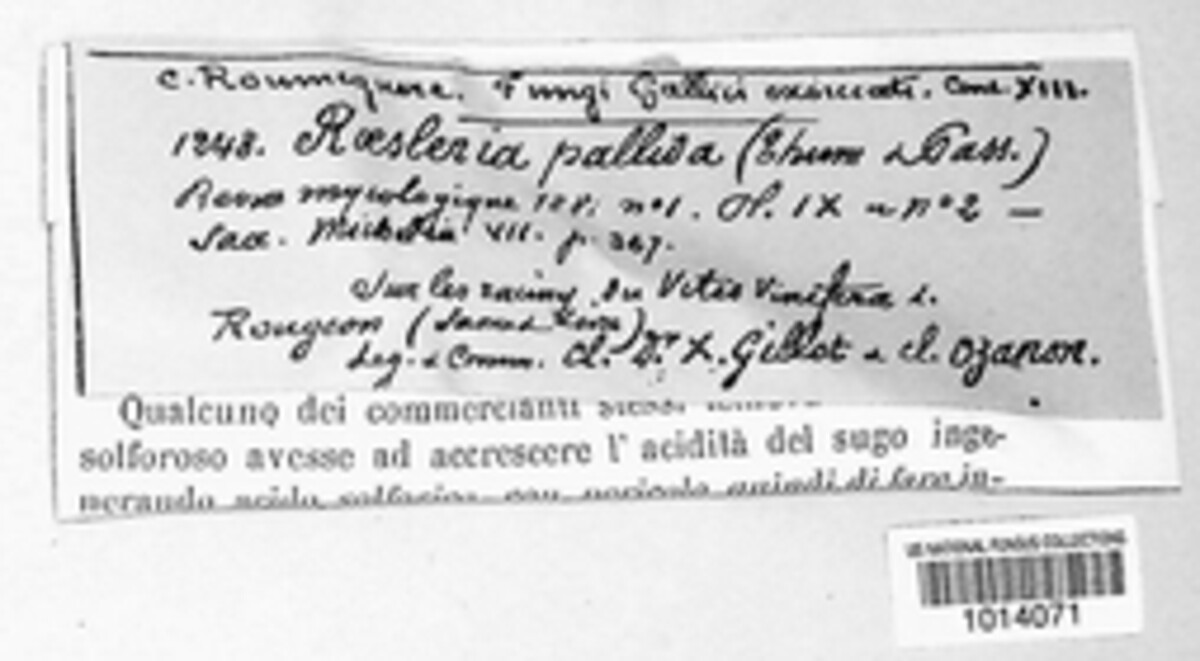 C. Roumeguere. Fungi Gallici exsiccati. Cent. XIII.
1248. Rœsleria pallida (Thum & Pass.)
Revue mycologique n° 1. Pl. IX n° 2 —
Sacc. Michelia VII. p. 367.
Sur les racines du Vitis Vinifera
Rougeon (Saone & Loire)
Leg. & Comm. Cl. Dr. X. Gillot & cl. Ozanon.
Qualcuno dei commercianti stessi
solforoso avesse ad accrescere l' acidità del sugo inge-
nerando acido solforico, con pericolo quindi di fare in-
US NATIONAL FUNGUS COLLECTIONS
1014071